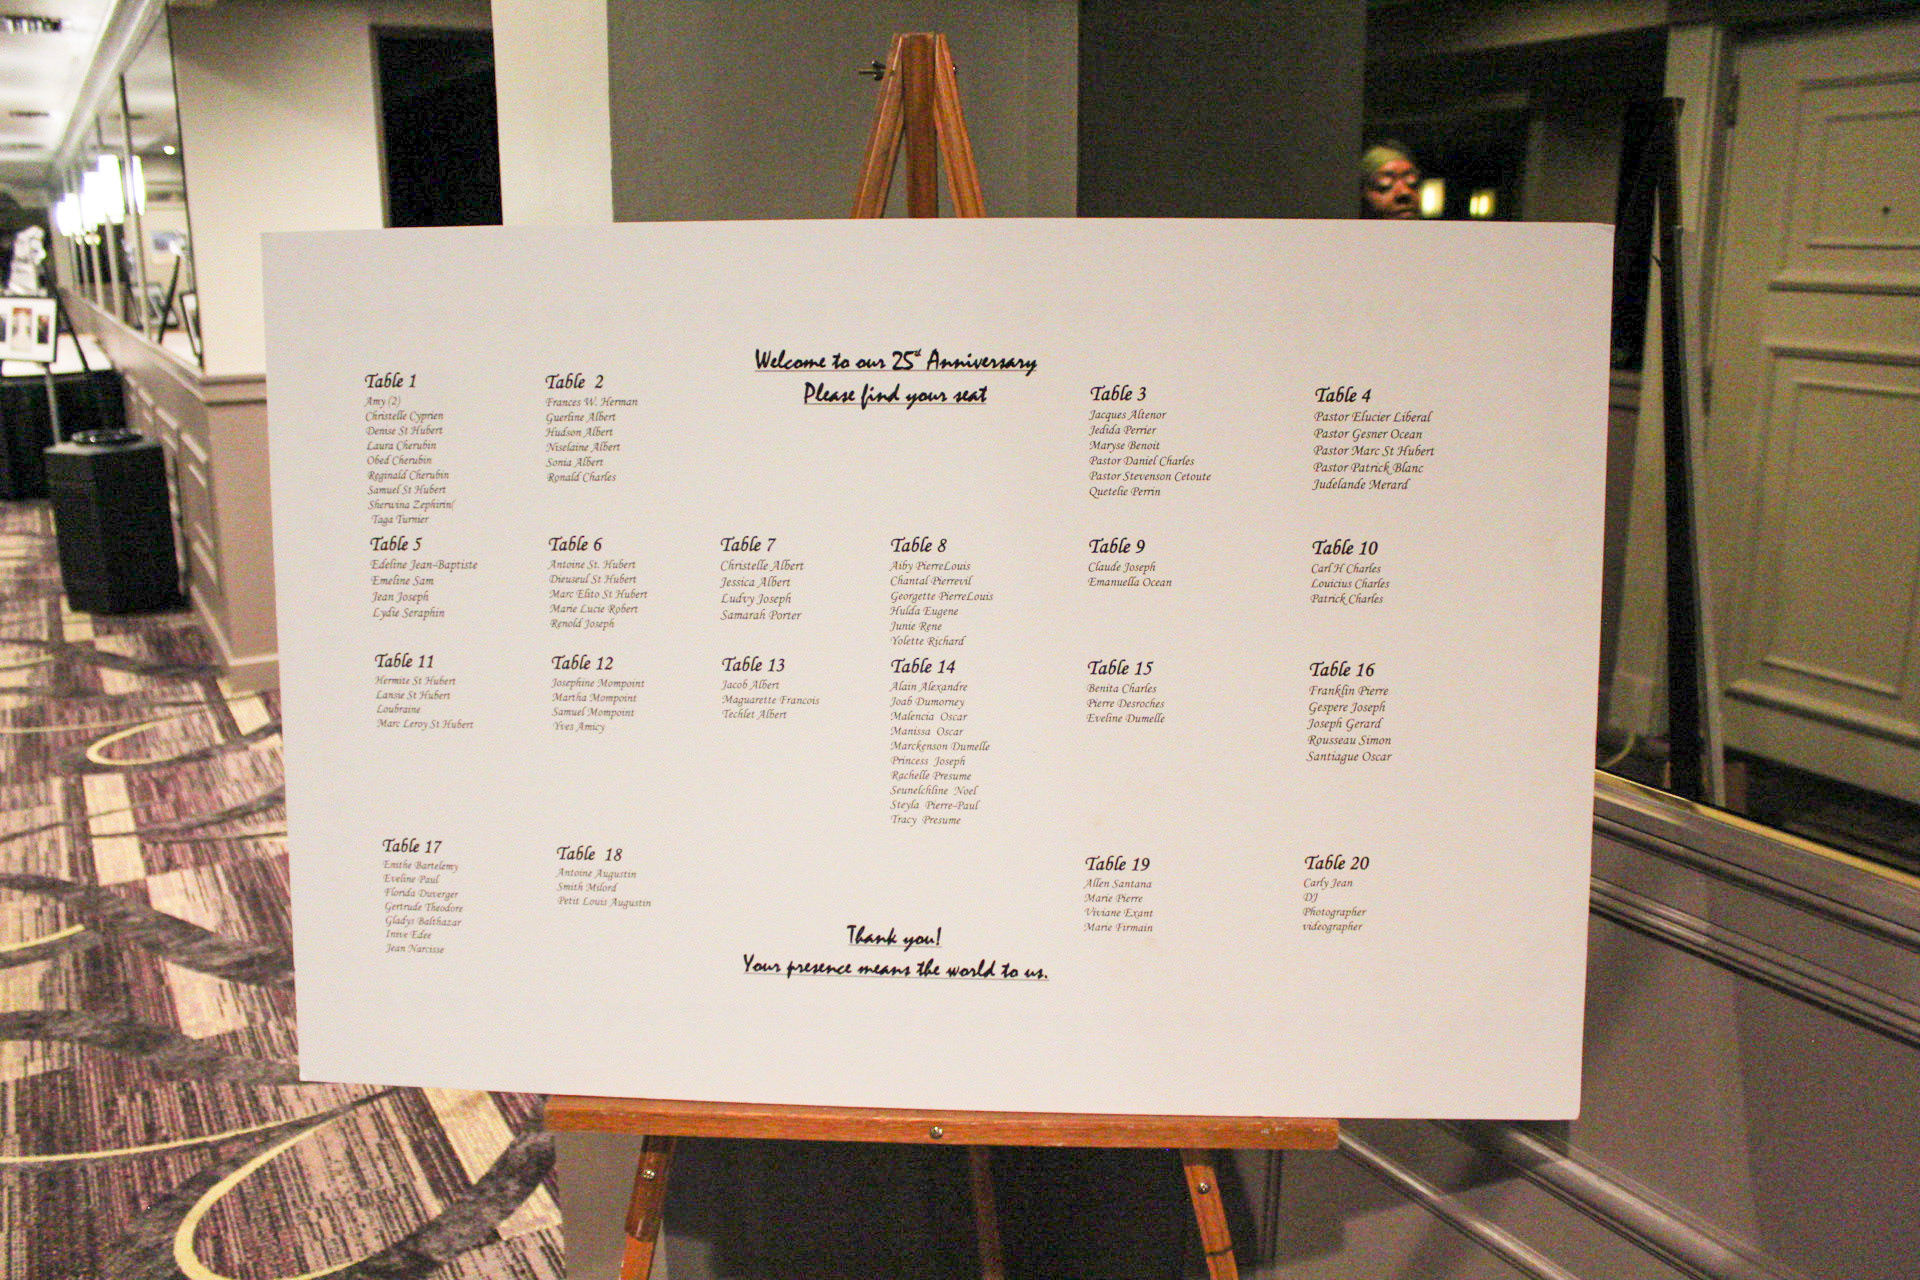 Welcome to our 25st Anniversary
Please find your seat
Table 1
Amy (2)
Christelle Cyprien
Denise St Hubert
Laura Cherubin
Obed Cherubin
Reginald Cherubin
Samuel St Hubert
Sherwina Zephirin/
Taga Turnier
Table 2
Frances W. Herman
Guerline Albert
Hudson Albert
Niselaine Albert
Sonia Albert
Ronald Charles
Table 3
Jacques Altenor
Jedida Perrier
Maryse Benoit
Pastor Daniel Charles
Pastor Stevenson Cetoute
Quetelie Perrin
Table 4
Pastor Elucier Liberal
Pastor Gesner Ocean
Pastor Marc St Hubert
Pastor Patrick Blanc
Judelande Merard
Table 5
Edeline Jean-Baptiste
Emeline Sam
Jean Joseph
Lydie Seraphin
Table 6
Antoine St. Hubert
Dieuseul St Hubert
Marc Elito St Hubert
Marie Lucie Robert
Renold Joseph
Table 7
Christelle Albert
Jessica Albert
Ludvy Joseph
Samarah Porter
Table 8
Aiby PierreLouis
Chantal Pierrevil
Georgette PierreLouis
Hulda Eugene
Junie Rene
Yolette Richard
Table 9
Claude Joseph
Emanuella Ocean
Table 10
Carl H Charles
Louicius Charles
Patrick Charles
Table 11
Hermite St Hubert
Lansie St Hubert
Loubraine
Marc Leroy St Hubert
Table 12
Josephine Mompoint
Martha Mompoint
Samuel Mompoint
Yves Amicy
Table 13
Jacob Albert
Maguarette Francois
Techlet Albert
Table 14
Alain Alexandre
Joab Dumorney
Malencia Oscar
Manissa Oscar
Marckenson Dumelle
Princess Joseph
Rachelle Presume
Seunelchline Noel
Steyla Pierre-Paul
Tracy Presume
Table 15
Benita Charles
Pierre Desroches
Eveline Dumelle
Table 16
Franklin Pierre
Gespere Joseph
Joseph Gerard
Rousseau Simon
Santiague Oscar
Table 17
Emithe Bartelemy
Eveline Paul
Florida Duverger
Gertrude Theodore
Gladys Balthazar
Inive Edee
Jean Narcisse
Table 18
Antoine Augustin
Smith Milord
Petit Louis Augustin
Table 19
Allen Santana
Marie Pierre
Viviane Exant
Marie Firmain
Table 20
Carly Jean
DJ
Photographer
videographer
Thank you!
Your presence means the world to us.